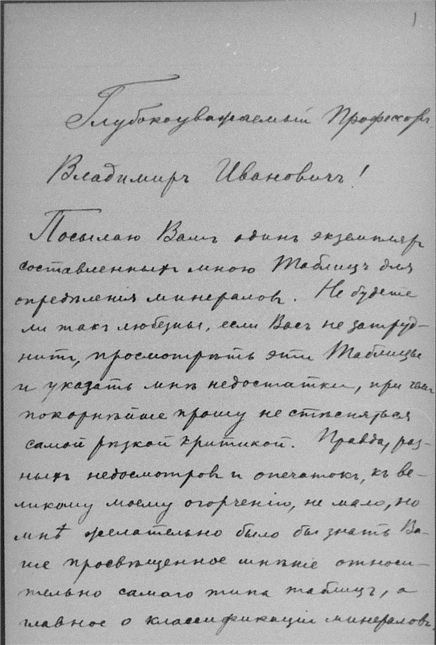 1
Глубокоуважаемый Профессоръ
Владимиръ Ивановичъ!
Посылаю Вамъ одинъ экземпляръ
составленныхъ мною Таблицъ для
опредѣленія минераловъ. Не будете
ли такъ любезны, если Васъ не затруд-
нитъ, просмотрѣть эти Таблицы
и указать мнѣ недостатки, при чемъ
покорнѣйше прошу не стѣсняться
самой рѣзкой критикой. Правда, раз-
ныхъ недосмотровъ и опечатокъ, къ ве-
ликому моему огорченію, не мало, но
мнѣ желательно было бы знать Ва-
ше просвѣщенное мнѣніе относи-
тельно самого типа таблицъ, а
главное о классификаціи минераловъ.